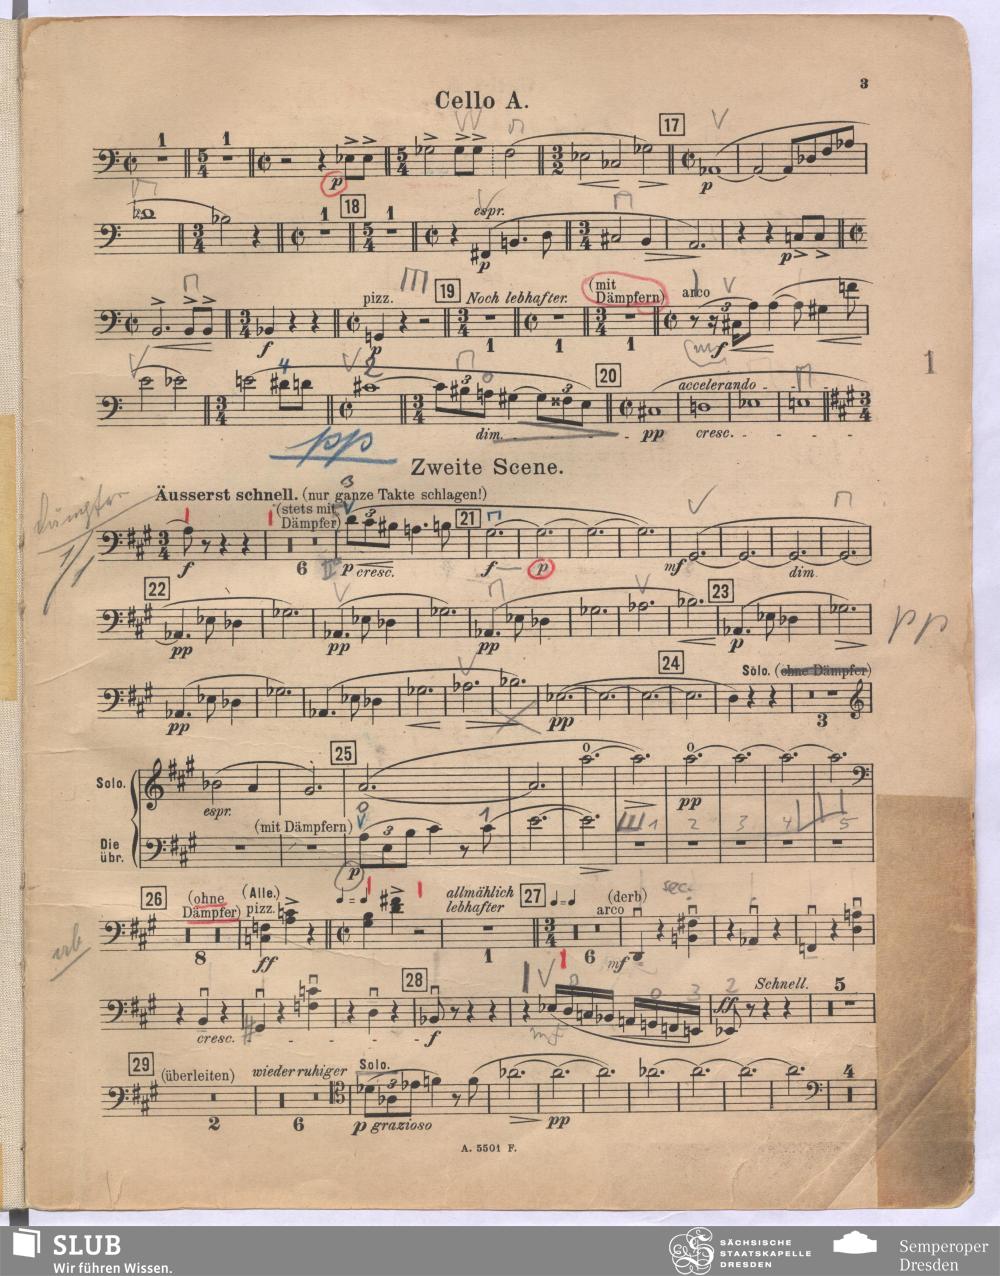 3
Cello A.
1 1 17
p p
18
1 1 espr.
p p
pizz. 19 Noch lebhafter. (mit Dämpfern) arco
f p 1 1 1 mf
1
4 2 3 3 20 accelerando
dim. pp cresc.
pp
Zweite Scene.
Dämpfer
Äusserst schnell. (nur ganze Takte schlagen!)
(stets mit Dämpfer) 3 21
f 6 p cresc. f p mf dim.
22 23
pp pp pp p pp
24 Solo. (ohne Dämpfer)
pp pp 3
25
Solo.
espr. pp
(mit Dämpfern) 3
Die übr.
p 1 2 3 4 5
26 (ohne Dämpfer) (Alle.) pizz. allmählich lebhafter 27 arco (derb)
8 ff 1 6 mf
28 Schnell. 5
cresc. f mf ff
29 (überleiten) wieder ruhiger Solo. 3 4
2 6 p grazioso pp
A. 5501 F.
SLUB
Wir führen Wissen.
SÄCHSISCHE
STAATSKAPELLE
DRESDEN
Semperoper
Dresden